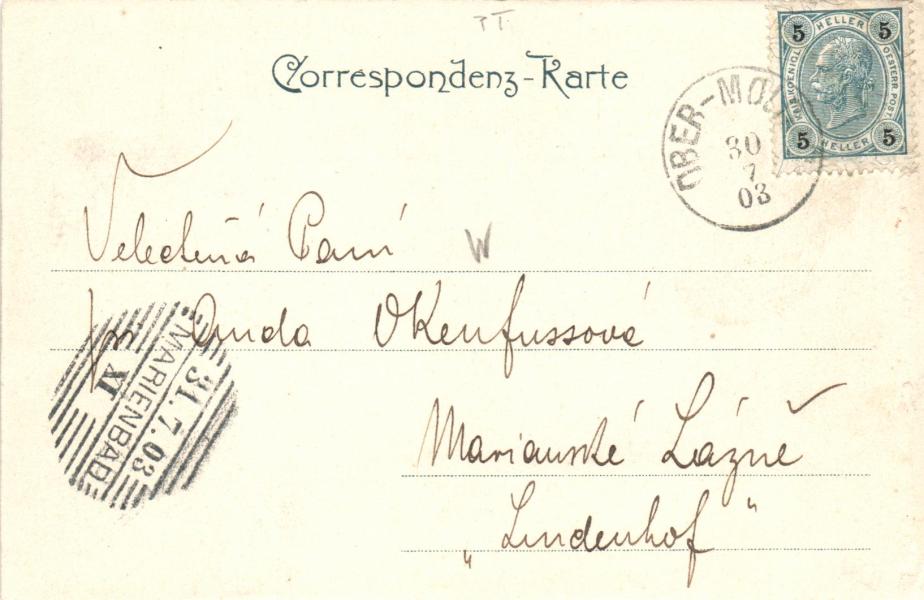 Correspondenz-Karte
5 HELLER 5
KAIS. KOENIGL.
OESTERR. POST.
5 HELLER 5
OBER-MO
30
7
03
Velectěná Paní
W
Okenfussová
MARIENBAD
31.7.03
XI
Marianské Lázně
„Lindenhof“